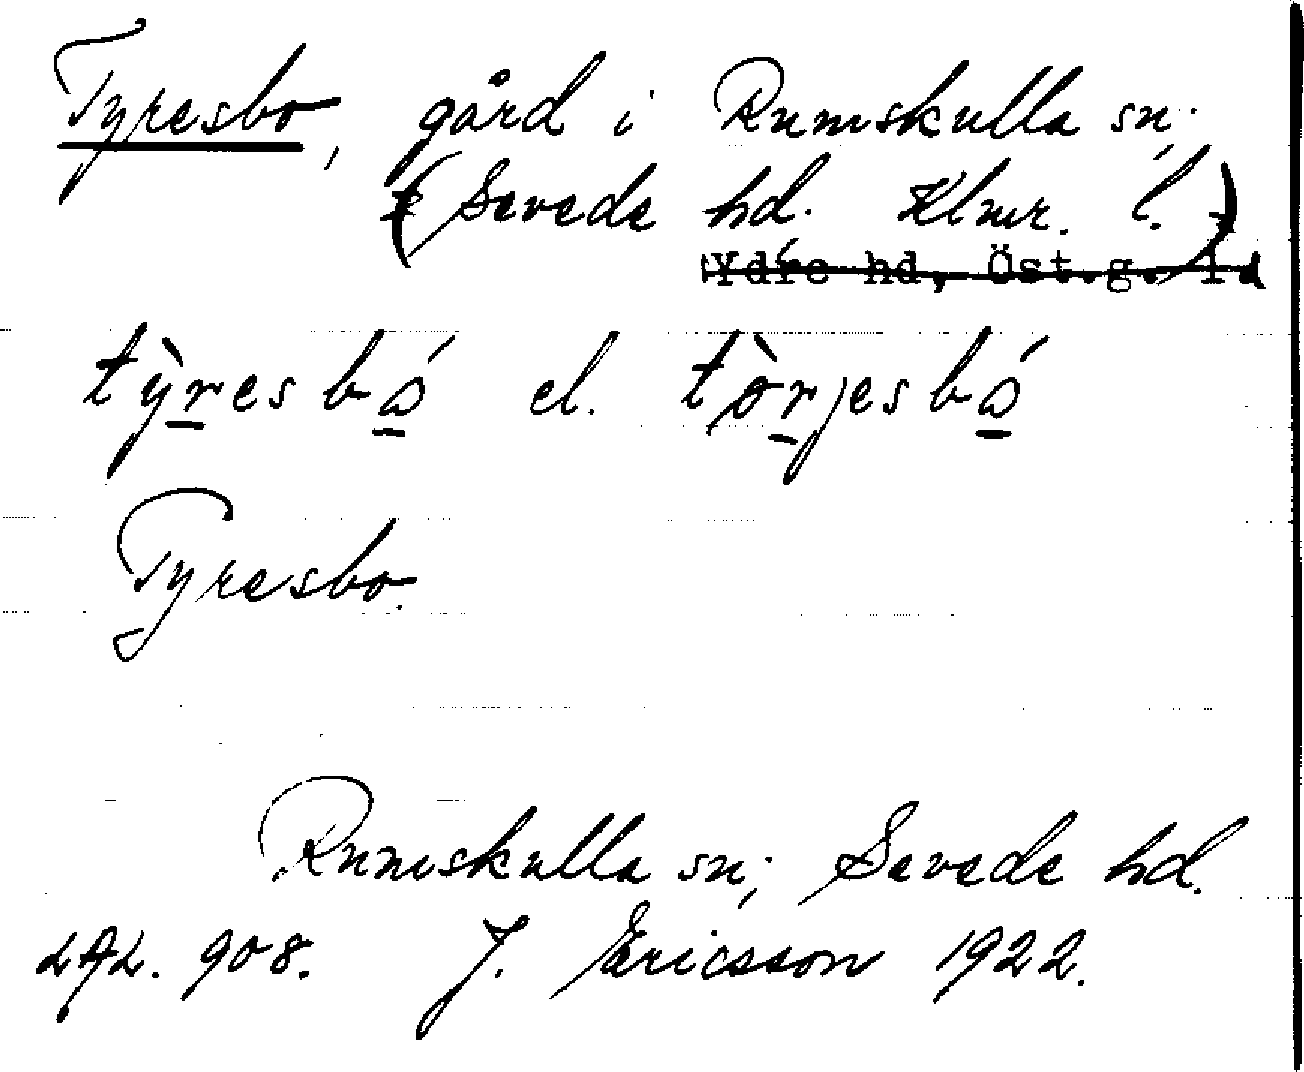 Tyresbo, gård i Rumskulla sn.
(Sevede hd. Klmr. l.)
Ydre hd, Öst.g. l.
tỳresbó el. tòrjesbó
Tyresbo.
Rumskulla sn, Sevede hd.
908. J. Ericsson 1922.